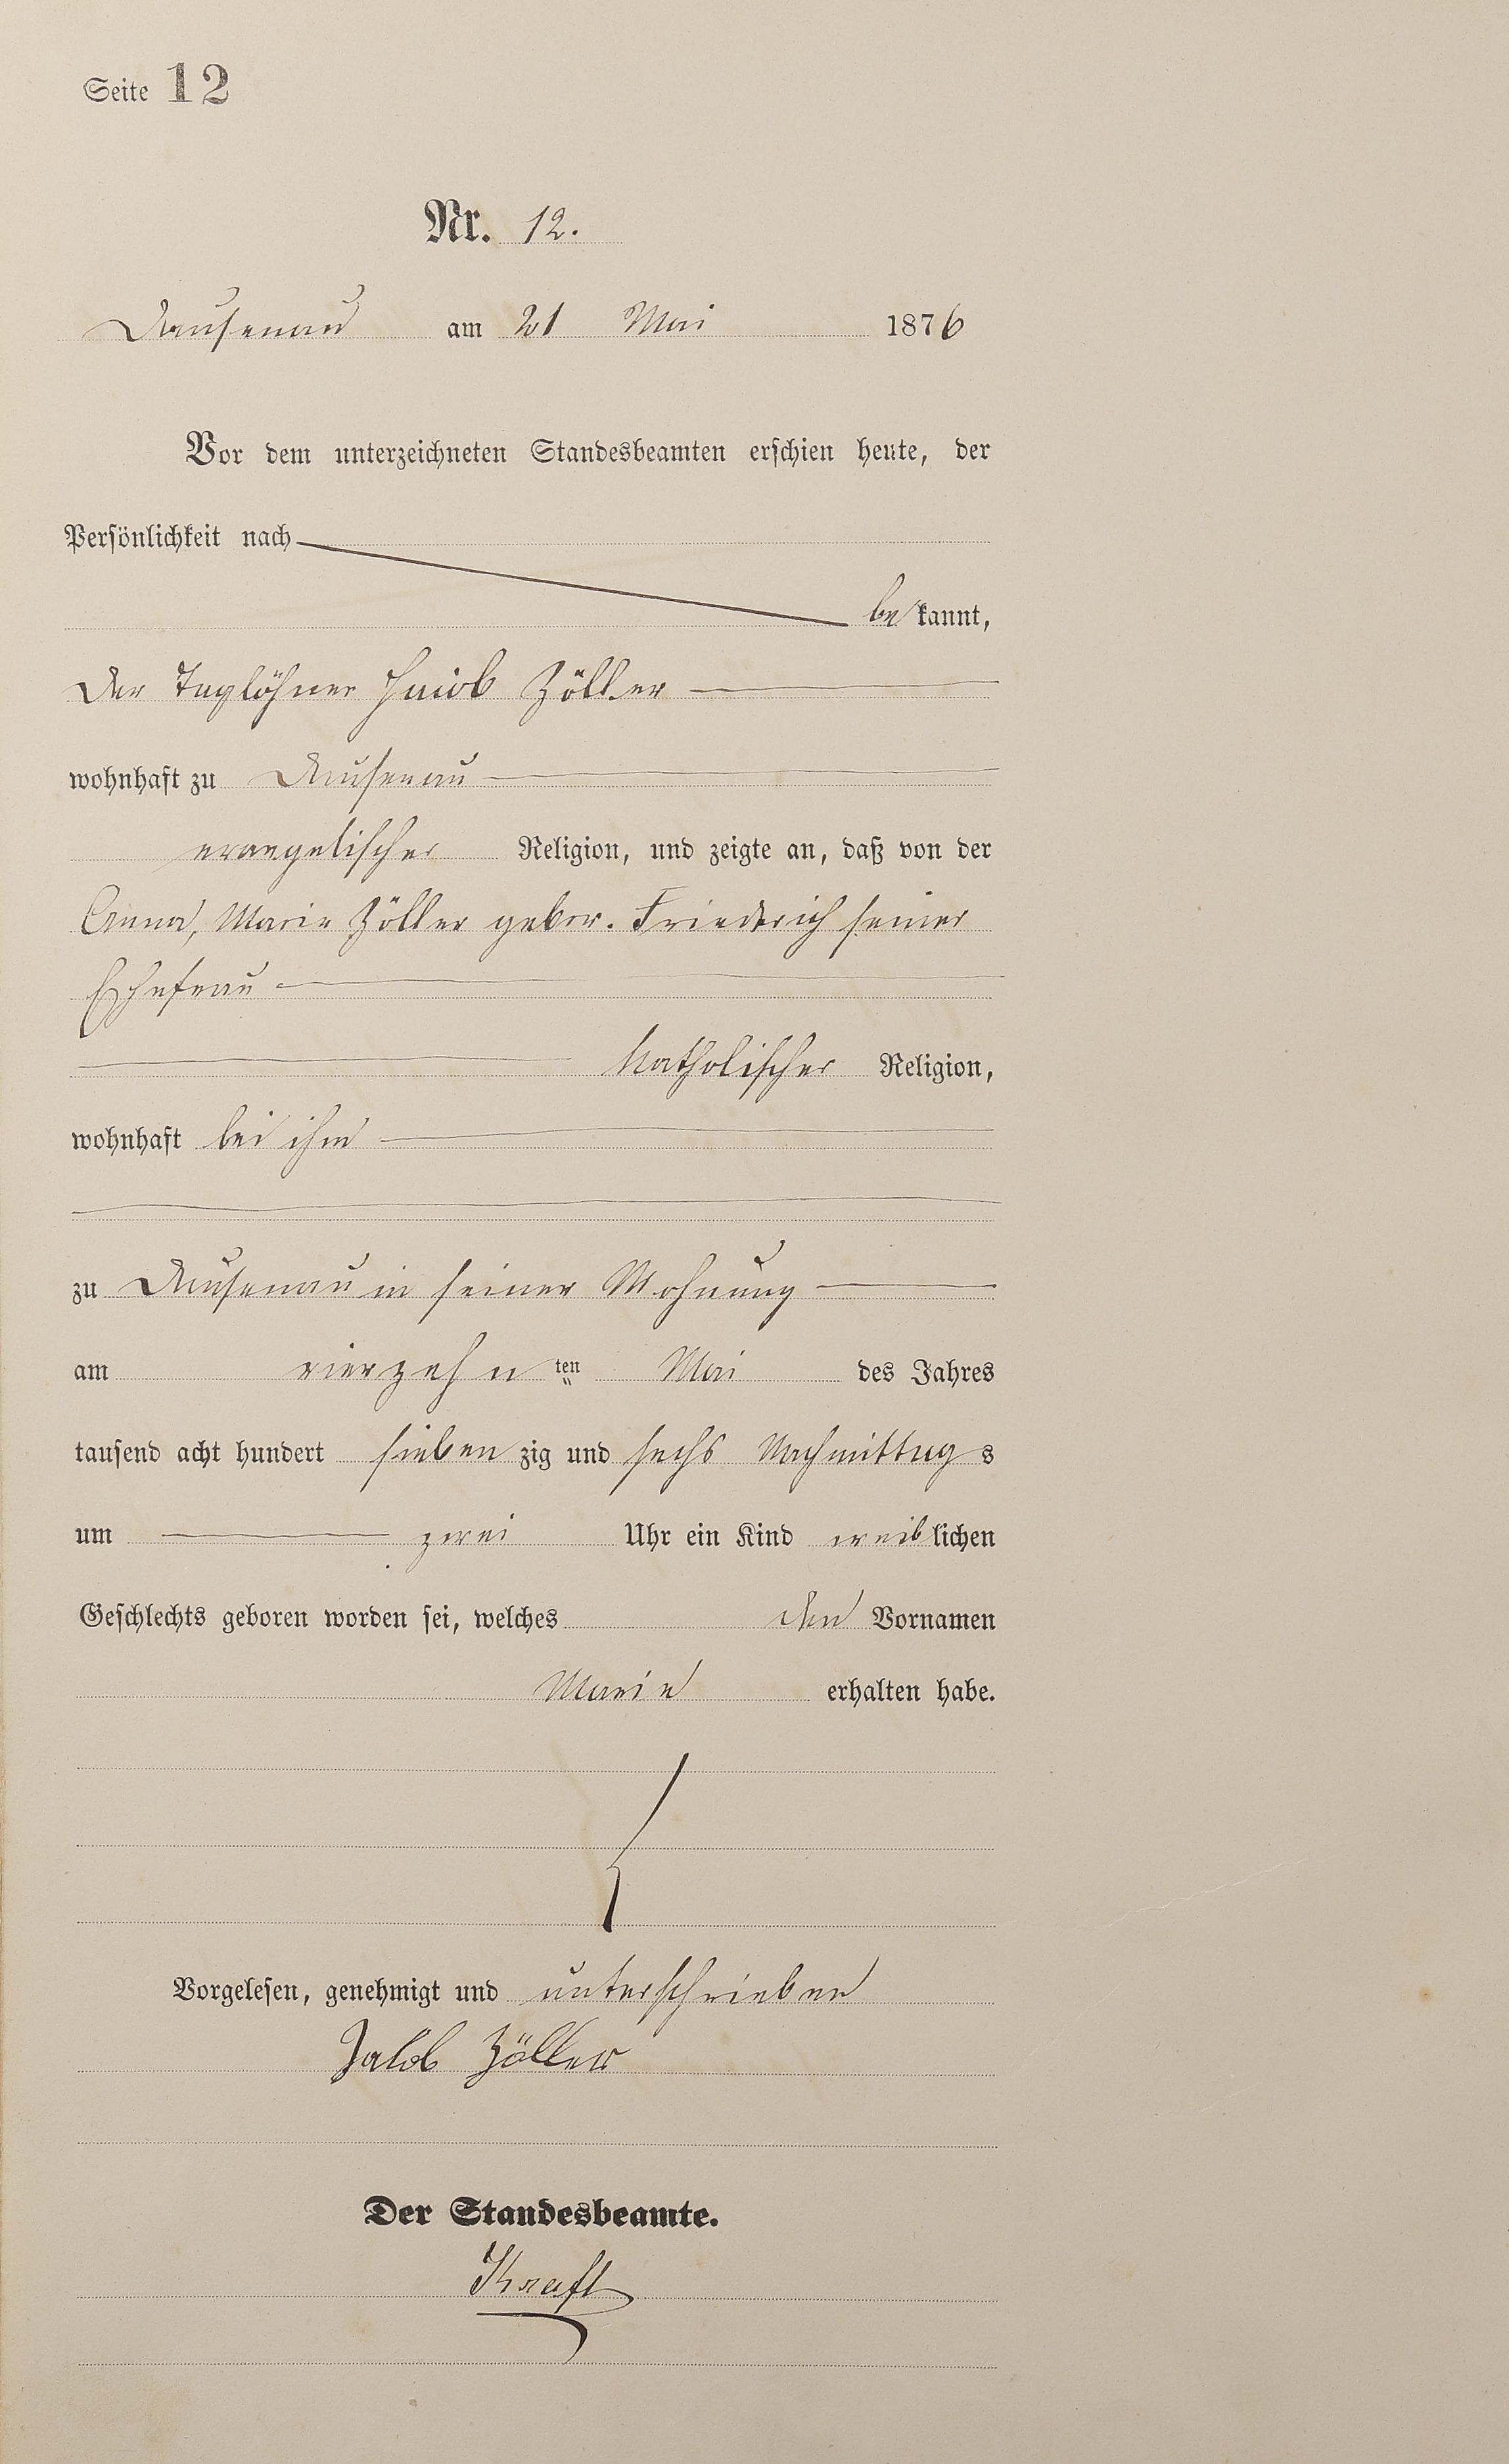 Seite 12
Nr. 12.
Dausenau am 21 Mai 1876
Vor dem unterzeichneten Standesbeamten erschien heute, der
Persönlichkeit nach
bekannt,
der Taglöhner Jacob Zöller
wohnhaft zu Dausenau
evangelischer Religion, und zeigte an, daß von der
Anna, Marie Zöller gebor. Friederich seiner
Ehefrau
katholischer Religion,
wohnhaft bei ihm
zu Dausenau in seiner Wohnung
am vierzehnten Mai des Jahres
tausend acht hundert siebenzig und sechs Nachmittags
um zwei Uhr ein Kind weiblichen
Geschlechts geboren worden sei, welches den Vornamen
Marie erhalten habe.
Vorgelesen, genehmigt und unterschrieben
Jakob Zöller
Der Standesbeamte.
Kraft